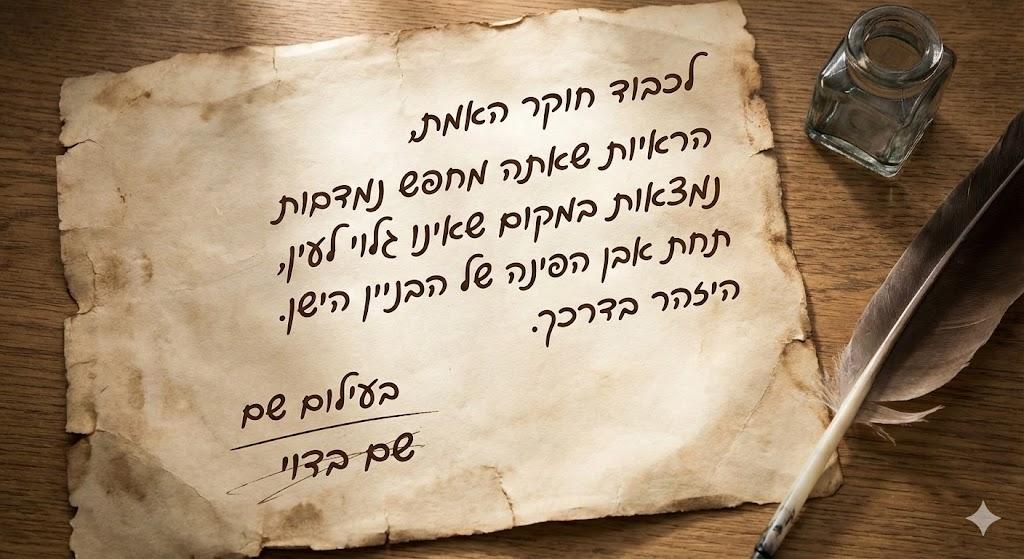 לכבוד חוקר האמת,
הראיות שאתה מחפש נמדבות
נמצאות במקום שאינו גלוי לעין,
תחת אבן הפינה של הבניין הישן.
היזהר בדרכך.
בעילום שם
שם בדוי